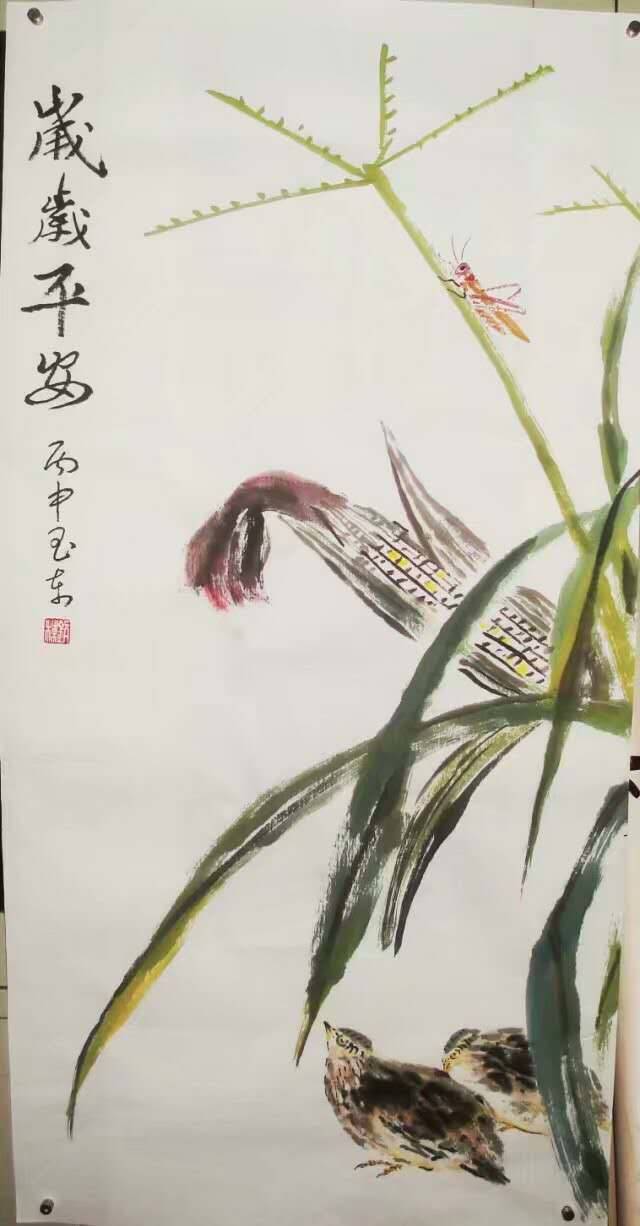 歲歲平安
丙申玉东